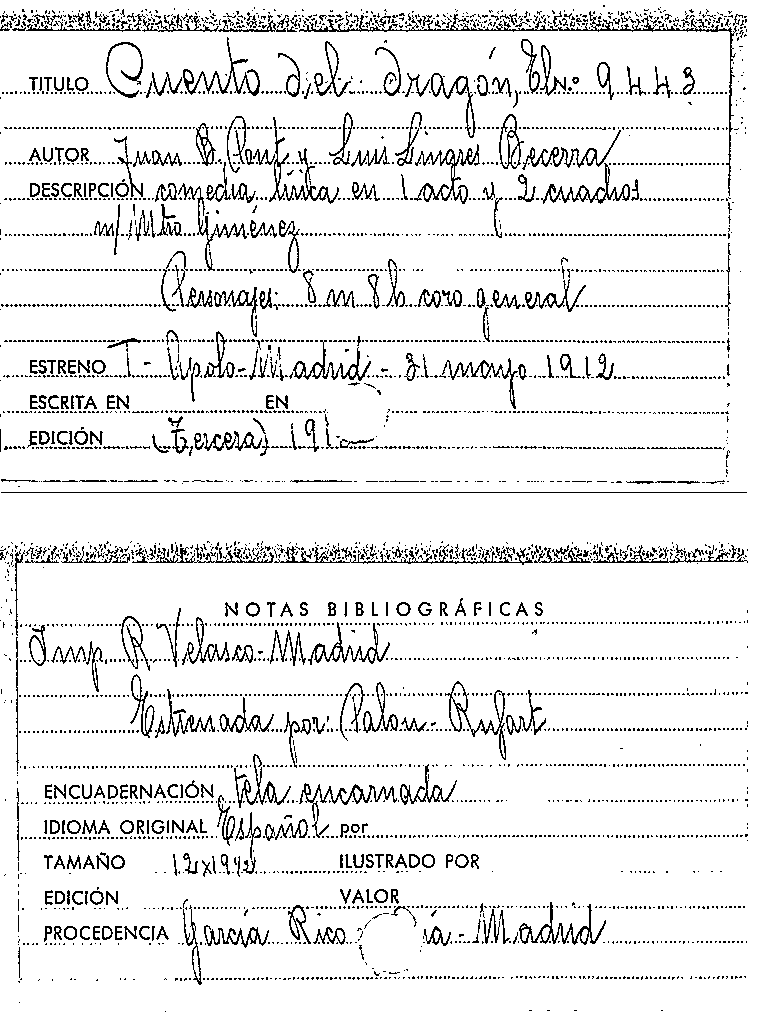 TITULO Cuento del dragón, El N.º 9443
AUTOR Juan B. Pont y Luis Linares Becerra
DESCRIPCIÓN comedia lírica en 1 acto y 2 cuadros
m/ Mtro Giménez
Personajes: 8 m 8 h coro general
ESTRENO T- Apolo-Madrid - 31 mayo 1912
ESCRITA EN EN
EDICIÓN (Tercera) 191
NOTAS BIBLIOGRÁFICAS
Imp. R Velasco-Madrid
Estrenada por: Palou- Rufart
ENCUADERNACIÓN tela encarnada
IDIOMA ORIGINAL Español por
TAMAÑO ILUSTRADO POR
EDICIÓN VALOR
PROCEDENCIA García Rico ía - Madrid